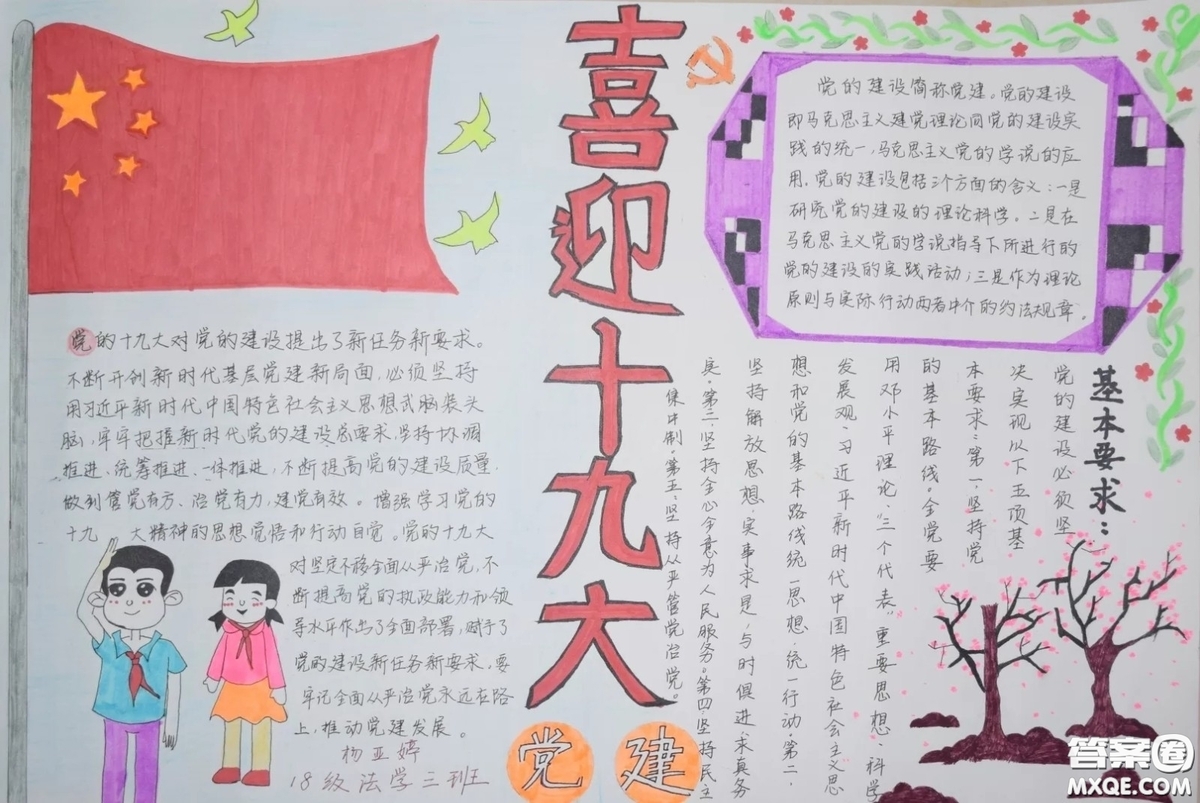 喜迎十九大
党建
党的建设简称党建。党的建设
即马克思主义建党理论同党的建设实
践的统一,马克思主义党的学说的应
用。党的建设包括三个方面的含义:一是
研究党的建设的理论科学。二是在
马克思主义党的学说指导下所进行的
党的建设的实践活动;三是作为理论
原则与实际行动两者中介的约法规章。
党的十九大对党的建设提出了新任务新要求。
不断开创新时代基层党建新局面,必须坚持
用习近平新时代中国特色社会主义思想武脑装头
脑,牢牢把握新时代党的建设总要求,坚持协调
推进、统筹推进、一体推进,不断提高党的建设质量,
做到管党有方、治党有力,建党有效。增强学习党的
十九 大精神的思想觉悟和行动自觉。党的十九大
对坚定不移全面从严治党,不
断提高党的执政能力和领
导水平作出了全面部署,赋予了
党的建设新任务新要求,要
牢记全面从严治党永远在路
上,推动党建发展。
杨亚婷
18级法学三班
基本要求:
党的建设必须坚
决实现以下五项基
本要求:第一,坚持党
的基本路线。全党要
用邓小平理论、“三个代表”重要思想、科学
发展观、习近平新时代中国特色社会主义思
想和党的基本路线统一思想,统一行动。第二,
坚持解放思想,实事求是,与时俱进,求真务
实。第三,坚持全心全意为人民服务。第四坚持民主
集中制。第五,坚持从严管党治党。
答案圈
MXQE.COM